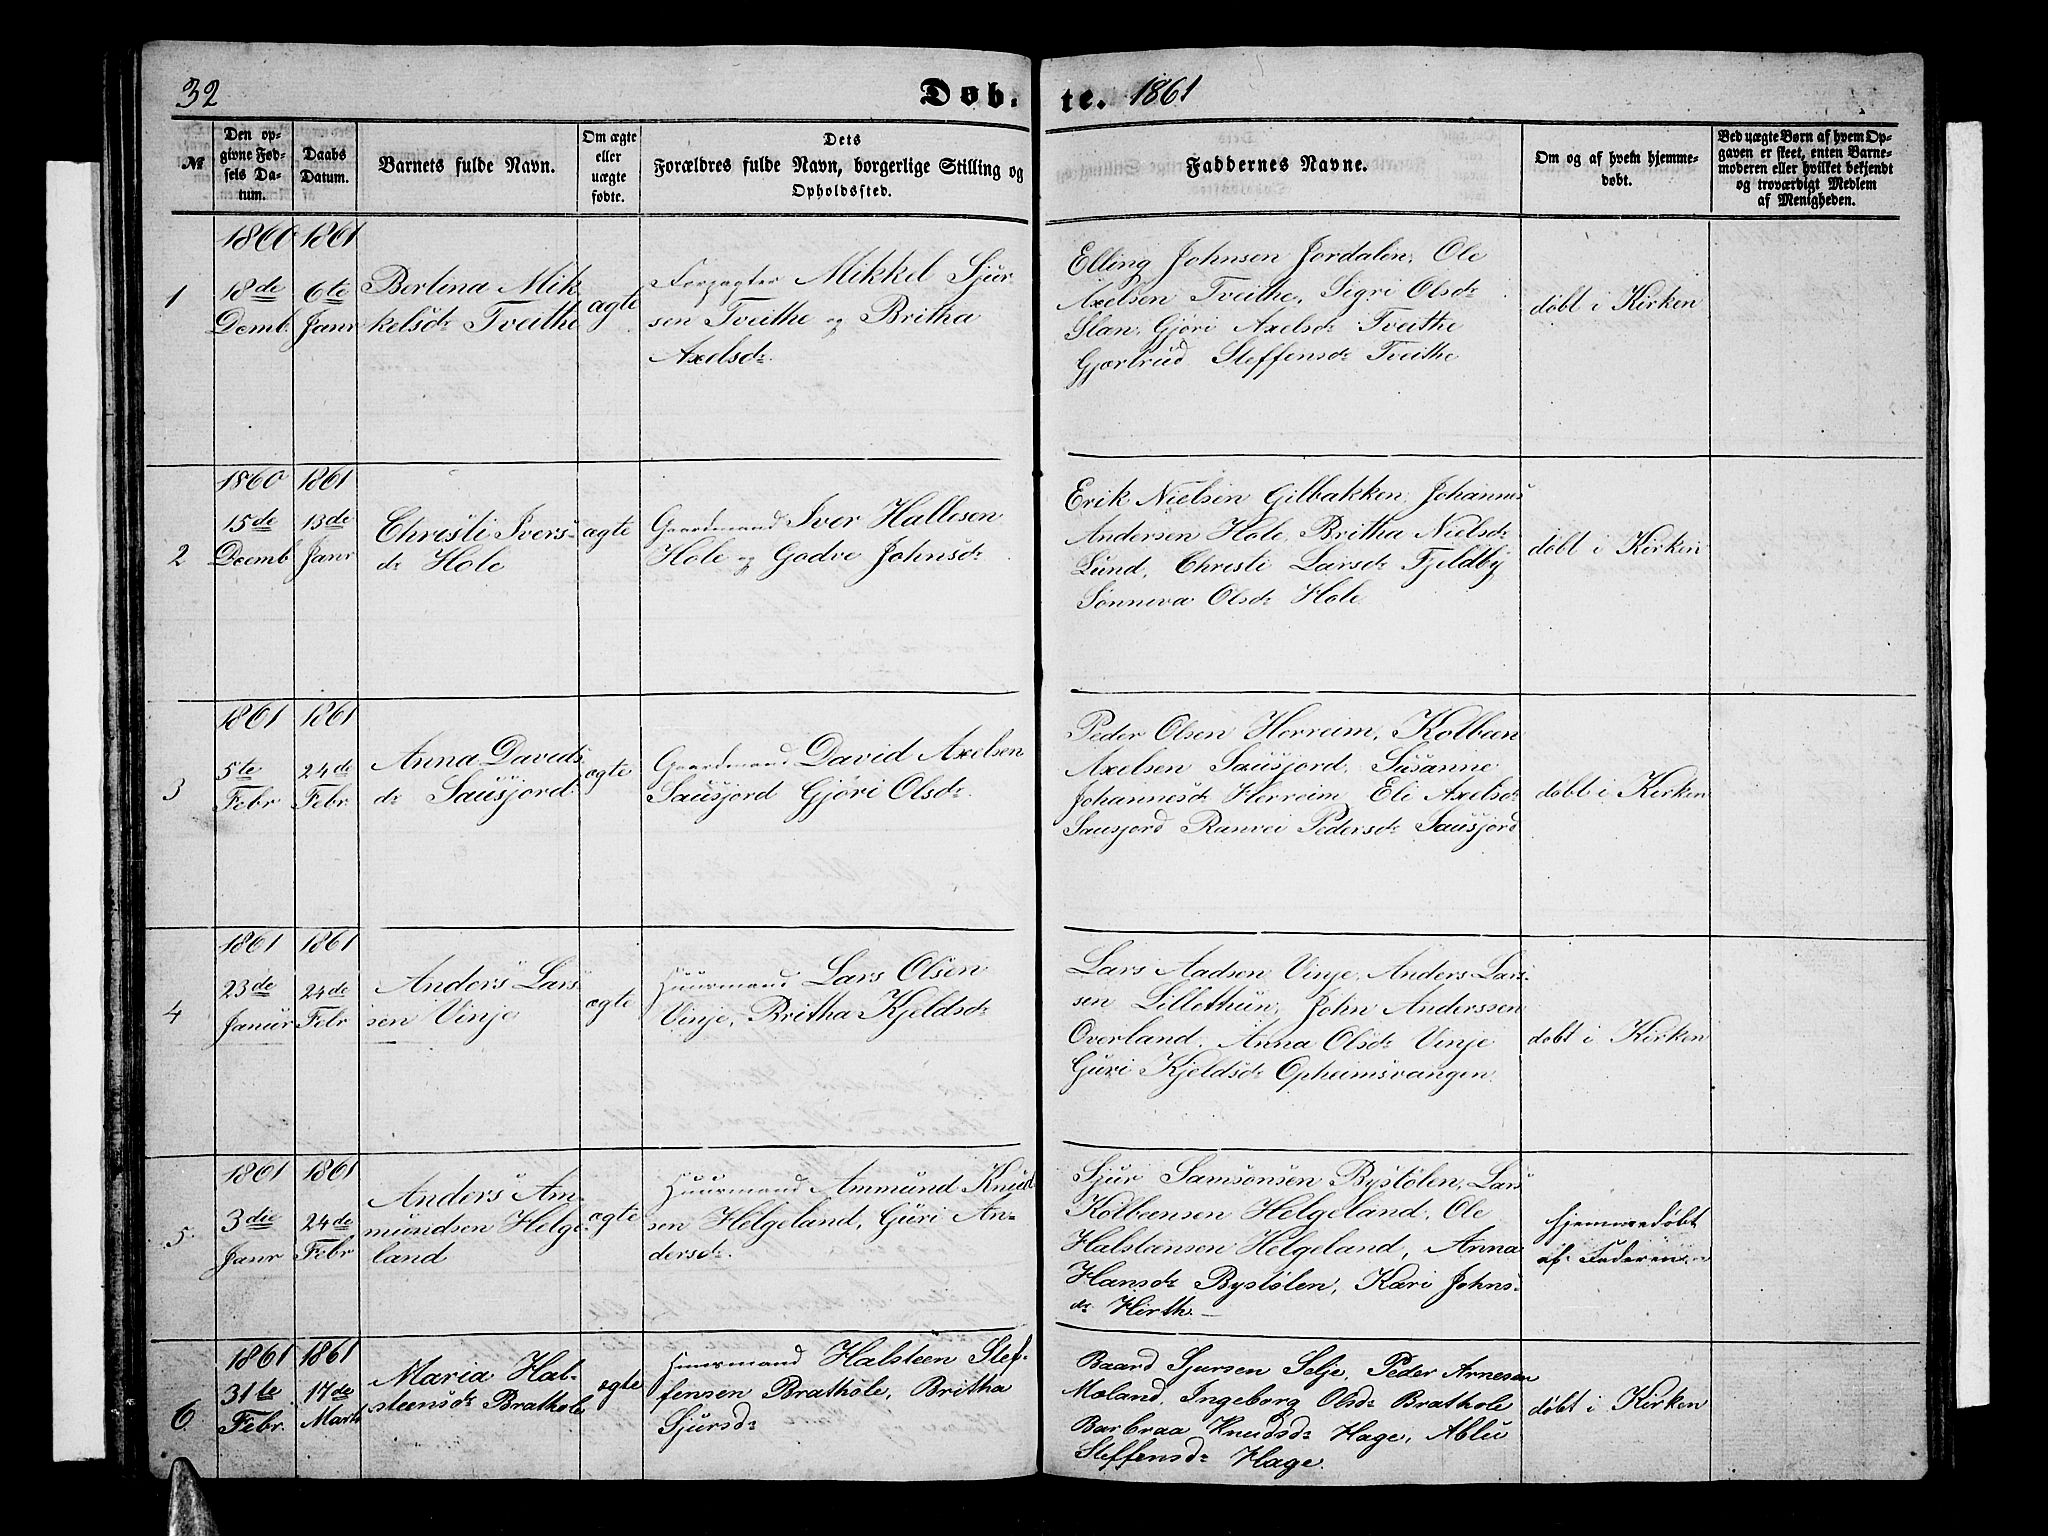 32
Døb-
te. 1861
№
Den op-
givne Fød-
sels Da-
tum.
Daabs
Datum.
Barnets fulde Navn.
Om ægte
eller
uægte
fødte.
Dets
Forældres fulde Navn, borgerlige Stilling og
Opholdssted.
Faddernes Navne.
Om og af hvem hjemme-
døbt.
Ved uægte Børn af hvem Op-
gaven er skeet, enten Barne-
moderen eller hvilket bekjendt
og troværdigt Medlem
af Menigheden.
1
1860
18de
Decmb.
1861
6te
Janr
Berlina Mik-
kelsdr Tveithe
ægte
Forpagter Mikkel Sjur-
sen Tveithe og Britha
Axelsdr.
Elling Johnsen Jordalen, Ole
Axelsen Tveithe, Sigri Olsdr
Slæn, Gjøri Axelsdr Tveithe
Gjertrud Steffensdr Tveithe
døbt i Kirken
2
1860
15de
Decemb
1861
13de
Janr
Christi Ivers-
dr Hole
ægte
Gaardmand Iver Hallesen
Hole og Godve Johnsdr
Erik Nielsen Gilbakken, Johannes
Andersen Hole, Britha Nielsdr
Lund, Christi Larsdr Fjeldby
Sønneva Olsdr Hole
døbt i Kirken
3
1861
5te
Febr
1861
24de
Febr
Anna Davids-
dr Sausjord
ægte
Gaardmand David Axelsen
Sausjord Gjøri Olsdr.
Peder Olsen Herreim, Kolben
Axelsen Sausjord, Susanne
Johannesdr Herreim Eli Axelsdr
Sausjord Ranvei Pedersdr Sausjord
døbt i Kirken
4
1861
23de
Janur
1861
24de
Febr
Anders Lars-
sen Vinje
ægte
Huusmand Lars Olsen
Vinje, Britha Kjeldsdr
Lars Aadsen Vinje, Anders Lars-
sen Lillethun, John Anderssen
Overland, Anna Olsdr Vinje
Guri Kjeldsdr Opheimsvangen.
døbt i Kirken
5
1861
3die
Janr
1861
24de
Febr
Anders Am-
mundsen Helge-
land
ægte
Huusmand Ammund Knud-
sen Helgeland, Guri An-
dersdr.
Sjur Samsonsen Bystølen, Lars
Kolbensen Helgeland, Ole
Halstensen Helgeland, Anna
Hansdr Bystølen, Kari Johns-
dr Hirth.
hjemmedøbt
af Faderen
6
1861
31te
Febr.
1861
17de
Marts
Maria Hal-
steensdr Brathole
ægte
Huusmand Halsteen Stef-
fensen Brathole, Britha
Sjursdr
Baard Sjursen Selje, Peder Arnesen
Moland, Ingeborg Olsdr Brathole
Barbraa Knudsdr Hage, Ablu
Steffensdr Hage.
døbt i Kirken